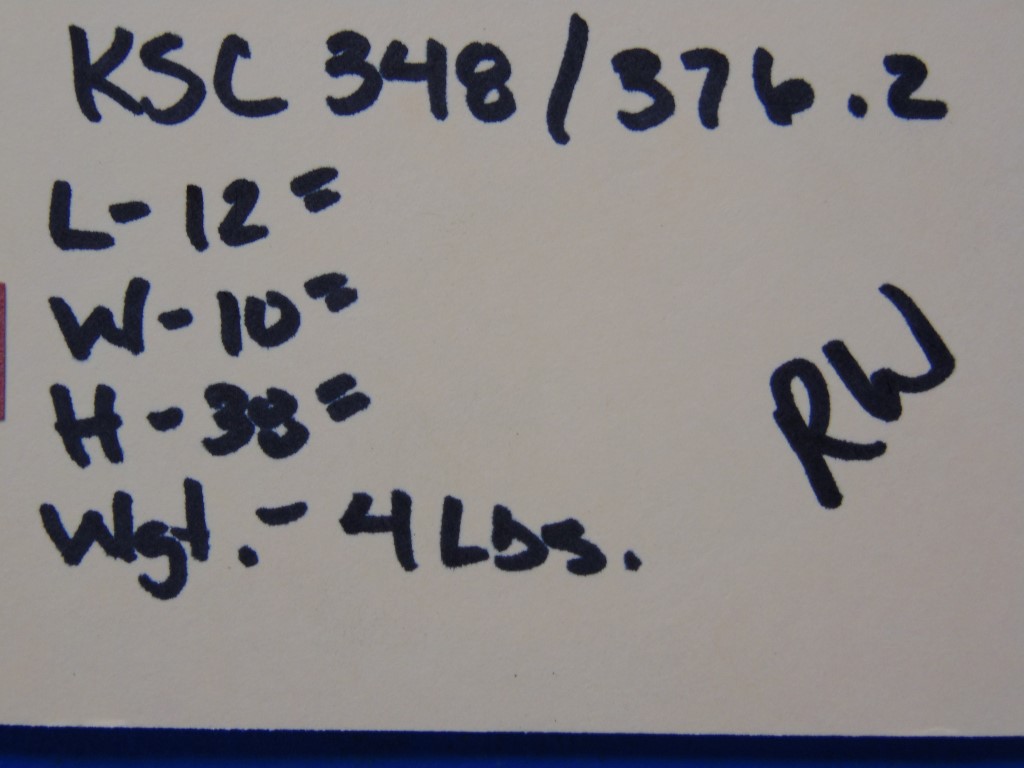 KSC 348/376.2
L-12"
W-10"
H-38"
RW
Wgt.- 4 Lbs.